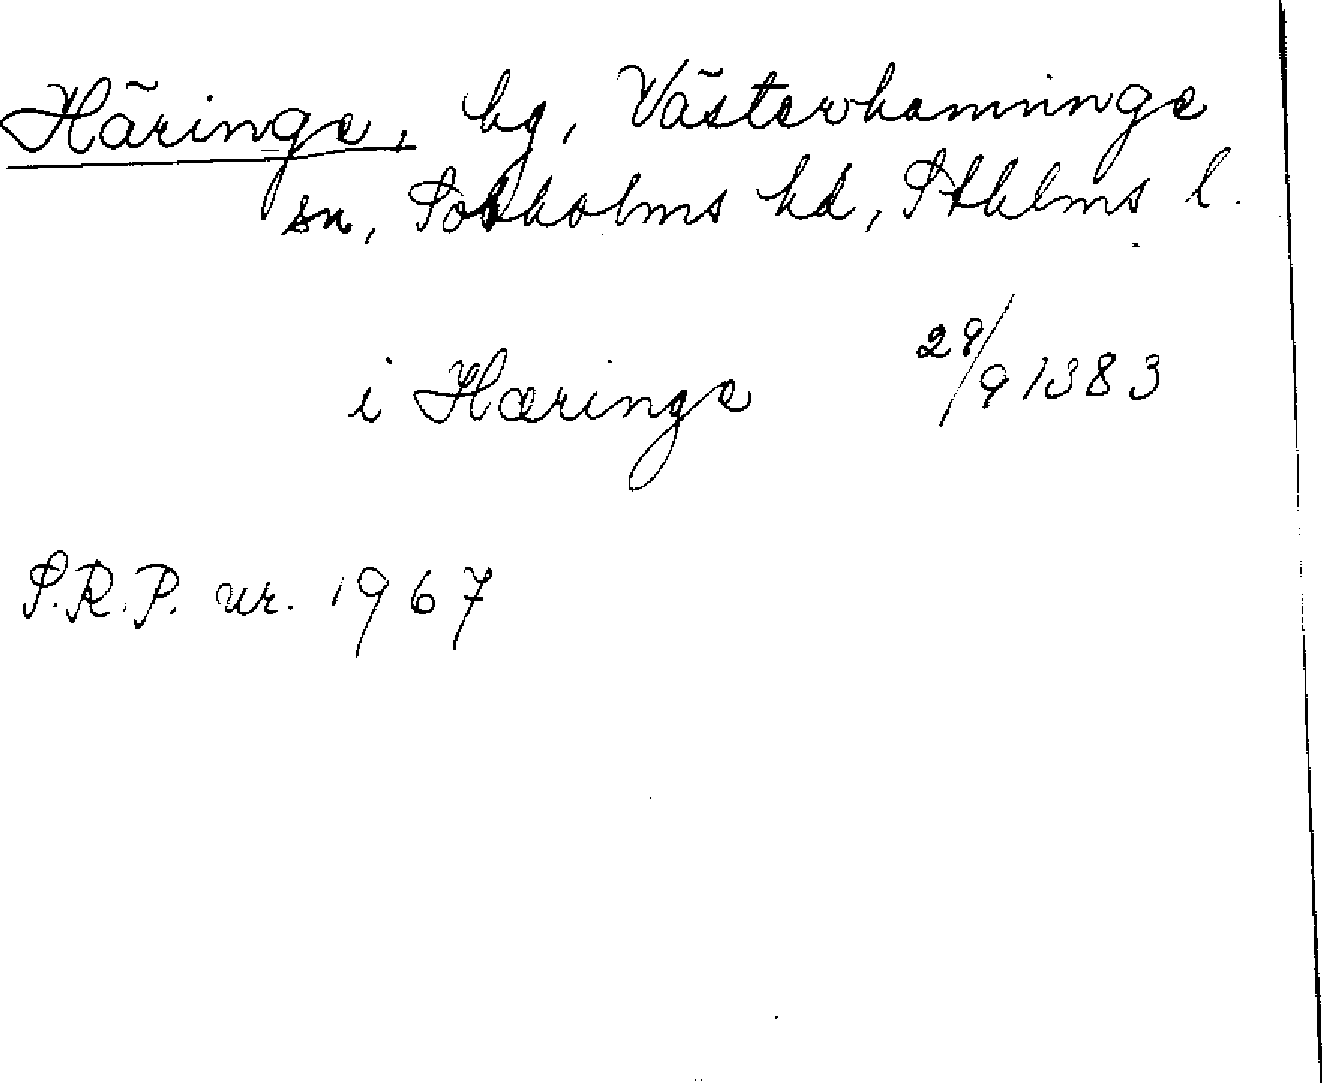 Häringe, hg, Västerhaninge
sn, Sotholms hd, Sthlms l.
i Hæringe 29/9 1383
S.R.P. nr. 1967